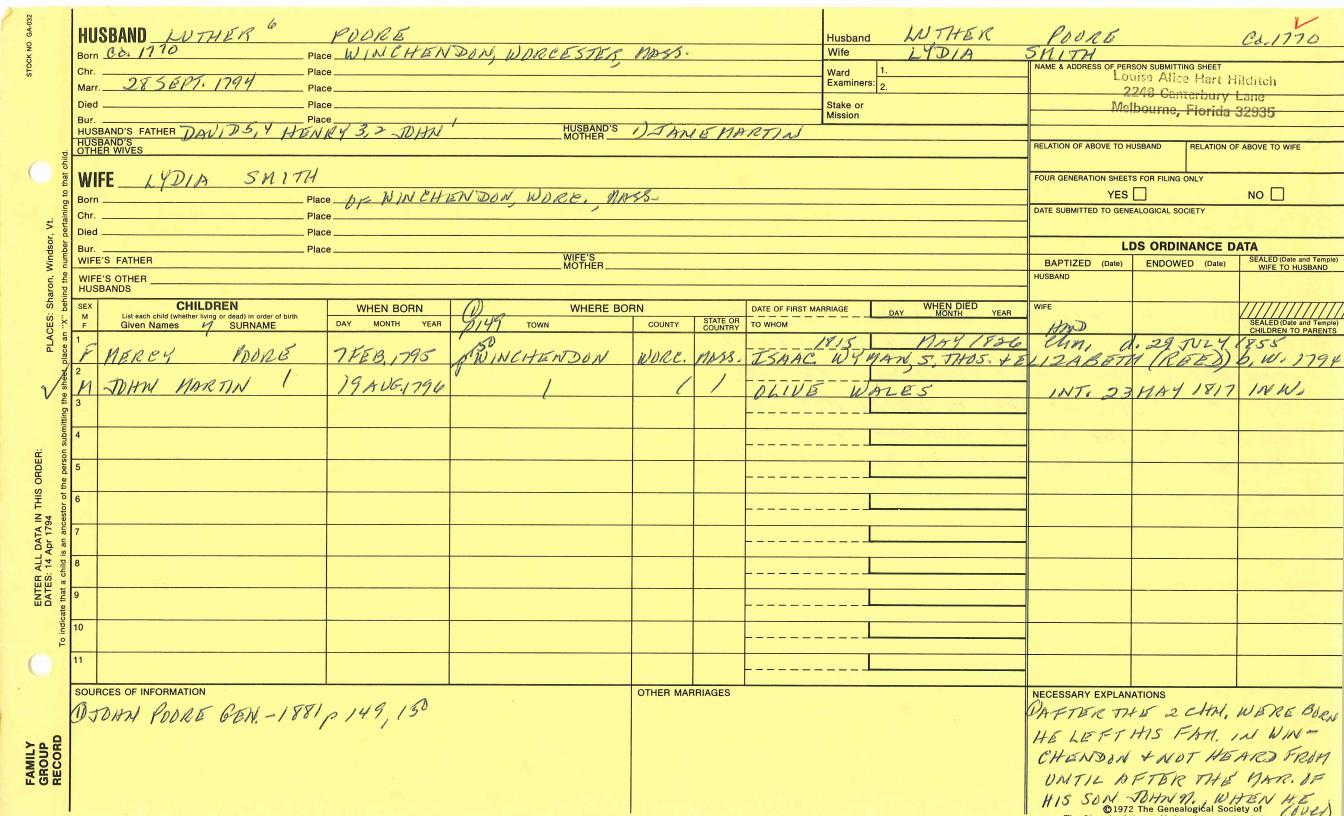 STOCK NO. GA-032
HUSBAND LUTHER 6 POORE
Born Ca. 1770 Place WINCHENDON, WORCESTER, MASS.
Chr. Place
Marr. 28 SEPT. 1794 Place
Died Place
Bur. Place
HUSBAND'S FATHER DAVID 5,4 HENRY 3,2 JOHN 1 HUSBAND'S MOTHER 1) JANE MARTIN
HUSBAND'S OTHER WIVES
Husband LUTHER POORE Ca. 1770
Wife LYDIA SMITH
Ward Examiners: 1.
2.
Stake or Mission
NAME & ADDRESS OF PERSON SUBMITTING SHEET
Louise Alice Hart Hilditch
2248 Canterbury Lane
Melbourne, Florida 32935
RELATION OF ABOVE TO HUSBAND RELATION OF ABOVE TO WIFE
FOUR GENERATION SHEETS FOR FILING ONLY
YES NO
DATE SUBMITTED TO GENEALOGICAL SOCIETY
WIFE LYDIA SMITH
Born Place OF WINCHENDON, WORC., MASS.
Chr. Place
Died Place
Bur. Place
WIFE'S FATHER WIFE'S MOTHER
WIFE'S OTHER HUSBANDS
LDS ORDINANCE DATA
BAPTIZED (Date) ENDOWED (Date) SEALED (Date and Temple) WIFE TO HUSBAND
HUSBAND
WIFE
SEALED (Date and Temple) CHILDREN TO PARENTS
SEX M F
CHILDREN
List each child (whether living or dead) in order of birth
Given Names 7 SURNAME
WHEN BORN
DAY MONTH YEAR
① p149
WHERE BORN
TOWN COUNTY STATE OR COUNTRY
DATE OF FIRST MARRIAGE
TO WHOM
WHEN DIED
DAY MONTH YEAR
1 F MERCY POORE 7 FEB, 1795 p150 WINCHENDON WORC. MASS. 1815 MAY 1826 d. 29 JULY 1855
ISAAC WYMAN, S. THOS. + ELIZABETH (REED) b. W. 1794
2 M JOHN MARTIN 19 AUG, 1796 OLIVE WALES INT. 23 MAY 1817 IN W.
3
4
5
6
7
8
9
10
11
SOURCES OF INFORMATION
① JOHN POORE GEN. - 1881 p 149, 150
OTHER MARRIAGES
NECESSARY EXPLANATIONS
① AFTER THE 2 CHN. WERE BORN
HE LEFT HIS FAM. IN WIN-
CHENDON + NOT HEARD FROM
UNTIL AFTER THE MAR. OF
HIS SON JOHN M., WHEN HE
(OVER)
©1972 The Genealogical Society of
PLACES: Sharon, Windsor, Vt.
To indicate that a child is an ancestor of the person submitting the sheet, place an "X" behind the number pertaining to that child.
ENTER ALL DATA IN THIS ORDER:
DATES: 14 Apr 1794
FAMILY
GROUP
RECORD